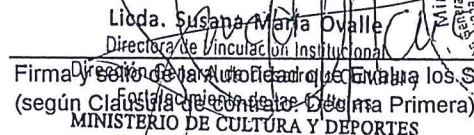 Licda. Susana María Ovalle
Directora de Vinculación Institucional
Firma y sello de la Autoridad que Evalua los S
Dirección de
(según Clausula de Contrato: Decima Primera)
Fortalecimiento de las
MINISTERIO DE CULTURA Y DEPORTES